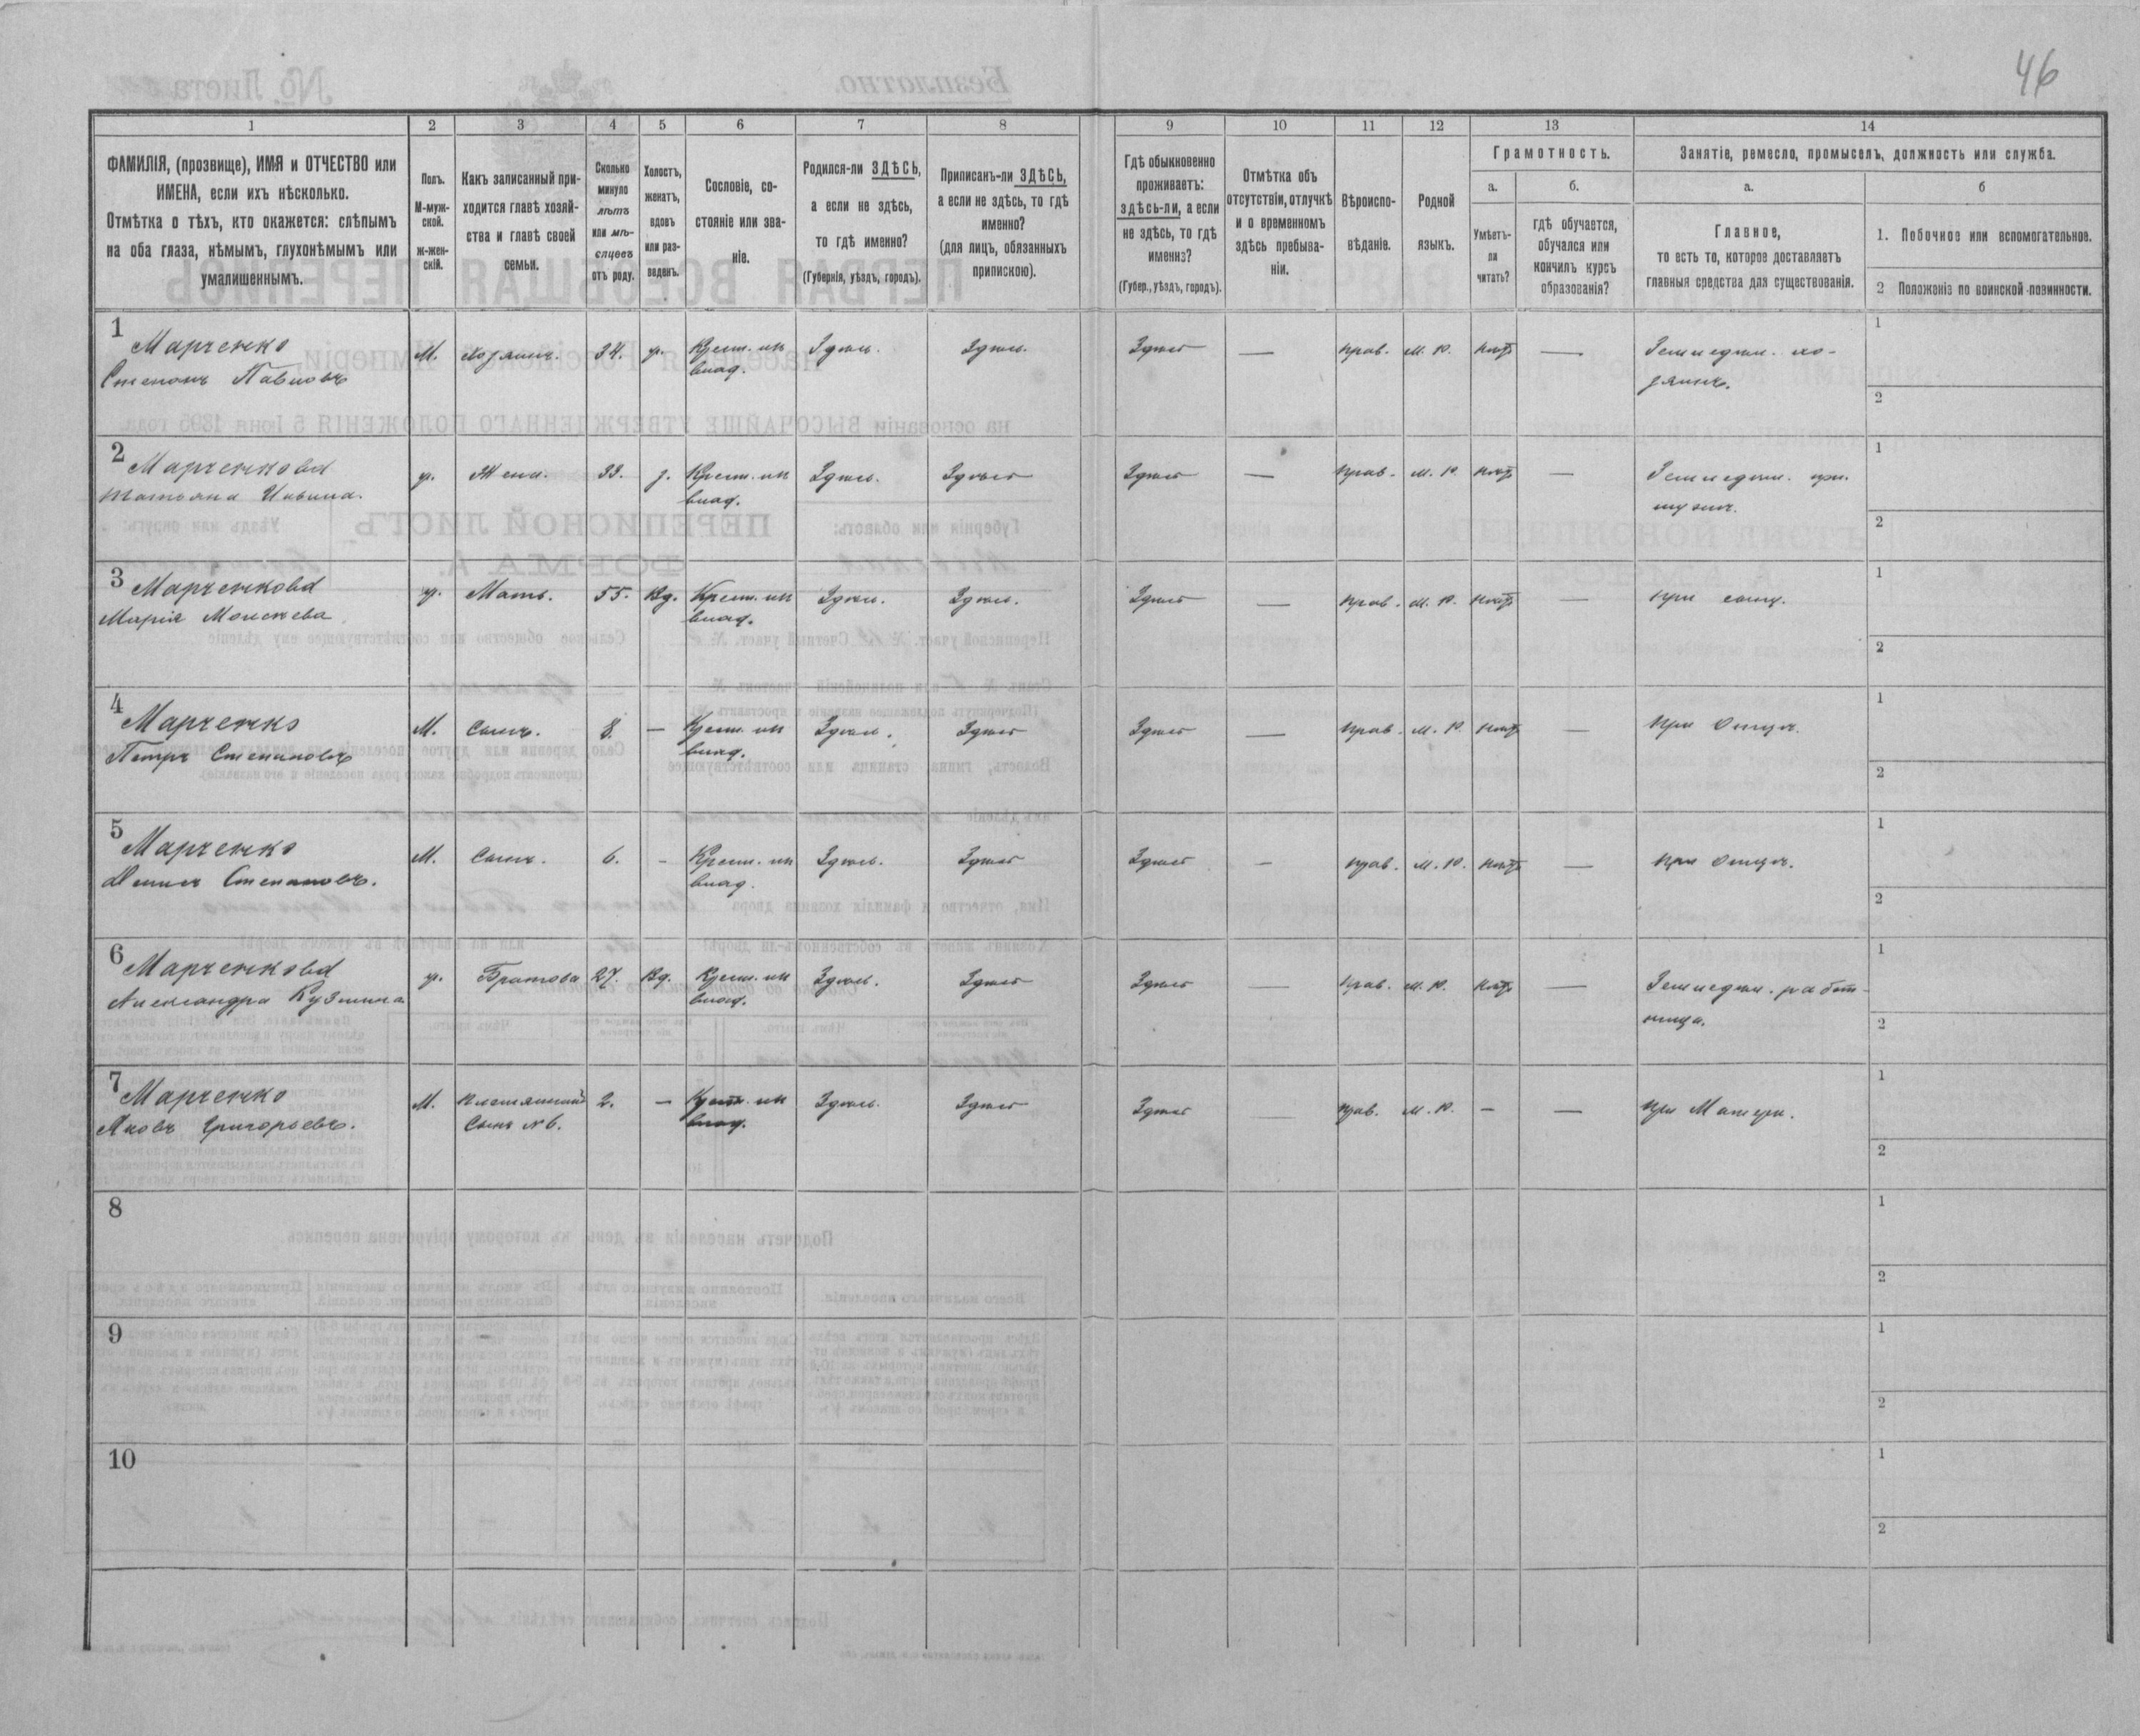 46
1
2
3
4
5
6
7
8
9
10
11
12
13
14
ФАМИЛІЯ, (прозвище), ИМЯ и ОТЧЕСТВО или
ИМЕНА, если ихъ нѣсколько.
Отмѣтка о тѣхъ, кто окажется: слѣпымъ
на оба глаза, нѣмымъ, глухонѣмымъ или
умалишеннымъ.
Полъ.
М-муж-
ской.
ж-жен-
скій.
Какъ записанный при-
ходится главѣ хозяй-
ства и главѣ своей
семьи.
Сколько
минуло
лѣтъ
или мѣ-
сяцевъ
отъ роду.
Холостъ,
женатъ,
вдовъ
или раз-
веденъ.
Сословіе, со-
стояніе или зва-
ніе.
Родился-ли ЗДѢСЬ,
а если не здѣсь,
то гдѣ именно?
(Губернія, уѣздъ, городъ).
Приписанъ-ли ЗДѢСЬ,
а если не здѣсь, то гдѣ
именно?
(для лицъ, обязанныхъ
припискою).
Гдѣ обыкновенно
проживаетъ:
здѣсь-ли, а если
не здѣсь, то гдѣ
именно?
(Губер., уѣздъ, городъ).
Отмѣтка объ
отсутствіи, отлучкѣ
и о временномъ
здѣсь пребыва-
ніи.
Вѣроиспо-
вѣданіе.
Родной
языкъ.
Грамотность.
а.
Умѣетъ-
ли
читать?
б.
гдѣ обучается,
обучался или
кончилъ курсъ
образованія?
Занятіе, ремесло, промыселъ, должность или служба.
а.
Главное,
то есть то, которое доставляетъ
главныя средства для существованія.
б
1. Побочное или вспомогательное.
2 Положеніе по воинской повинности.
1
Марченко
Степанъ Павловъ
М.
Хозяинъ.
34.
ж.
Крест. ип
влад.
Здѣсь.
Здѣсь.
Здѣсь
—
прав.
м. р.
нѣтъ
—
Земледѣл. хо-
зяинъ.
1
2
2
Марченкова
Татьяна
ж.
Жена.
33.
з.
Крест. ип
влад.
Здѣсь.
Здѣсь
Здѣсь
—
прав.
м. р.
нѣтъ
—
Земледѣл. при
мужѣ.
1
2
3
Марченкова
Марія Моисеева
ж.
Мать.
55.
Вд.
Крест. ип
влад.
Здѣсь.
Здѣсь.
Здѣсь
—
прав.
м. р.
нѣтъ
—
при сыну.
1
2
4
Марченко
Петръ Степановъ
М.
Сынъ.
8.
—
Крест. ип
влад.
Здѣсь.
Здѣсь
Здѣсь
—
прав.
м. р.
нѣтъ
—
при Отцѣ.
1
2
5
Марченко
Степановъ.
М.
Сынъ.
6.
-
Крест. ип
влад.
Здѣсь.
Здѣсь
Здѣсь
—
прав.
м. р.
нѣтъ
—
при Отцѣ.
1
2
6
Марченкова
Александра Кузмина
ж.
Братова
27.
Вд.
Крест. ип
влад.
Здѣсь.
Здѣсь
Здѣсь
—
прав.
м. р.
нѣтъ
—
Земледѣл. работ-
ница.
1
2
7
Марченко
Яковъ Григорьевъ.
М.
Племянникъ
Сынъ №6.
2.
—
Крест. ип
влад.
Здѣсь.
Здѣсь
Здѣсь
—
прав.
м. р.
-
—
при Матери.
1
2
8
1
2
9
1
2
10
1
2